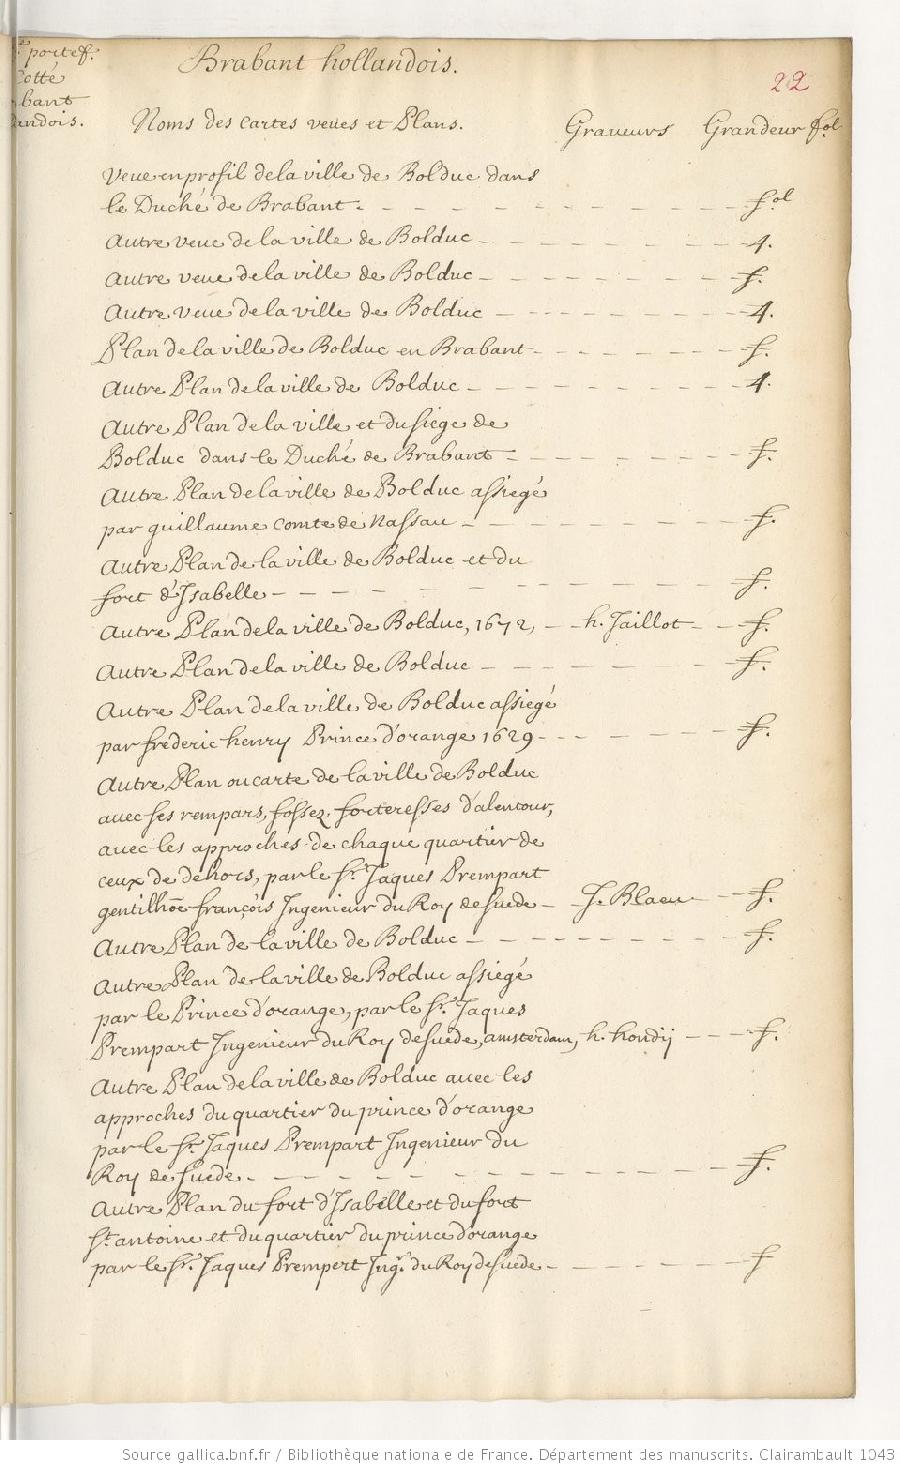 portef.
Cotté
bant
andois.
Brabant hollandois.
22
Noms des cartes veues et Plans. Graveurs Grandeur fol
Veue en profil de la ville de Bolduc dans
le Duché de Brabant - - - - - - - - fol
Autre veue de la ville de Bolduc - - - - - - - 4.
Autre veue de la ville de Bolduc - - - - - - - f.
Autre veue de la ville de Bolduc - - - - - - - 4.
Plan de la ville de Bolduc en Brabant - - - - - - f.
Autre Plan de la ville de Bolduc - - - - - - - 4.
Autre Plan de la ville et du siege de
Bolduc dans le Duché de Brabant - - - - - - - f.
Autre Plan de la ville de Bolduc assiegé
par guillaume comte de Nassau - - - - - - - f.
Autre Plan de la ville de Bolduc et du
fort d'Isabelle - - - - - - - - - f.
Autre Plan de la ville de Bolduc, 1672, - - h. Jaillot - - f.
Autre Plan de la ville de Bolduc - - - - - - f.
Autre Plan de la ville de Bolduc assiegé
par frederic henry Prince d'orange 1629 - - - - - - f.
Autre Plan ou carte de la ville de Bolduc
avec ses rempars, fossez, forteresses d'alentour,
avec les approches de chaque quartier de
ceux de dehors, par le Sr. Jaques Prempart
gentilhoe françois Ingenieur du Roy de suede - J. Blaeu - - f.
Autre Plan de la ville de Bolduc - - - - - - - f.
Autre Plan de la ville de Bolduc assiegé
par le Prince d'orange, par le Sr. Jaques
Prempart Ingenieur du Roy de suede, amsterdam, h. hondij - - - f.
Autre Plan de la ville de Bolduc avec les
approches du quartier du prince d'orange
par le Sr. Jaques Prempart Ingenieur du
Roy de suede - - - - - - - - - - f.
Autre Plan du fort d'Isabelle et du fort
St antoine et du quartier du prince d'orange
par le Sr. Jaques Prempert Ingr. du Roy de suede - - - - - - f
Source gallica.bnf.fr / Bibliothèque nationale de France. Département des manuscrits. Clairambault 1043